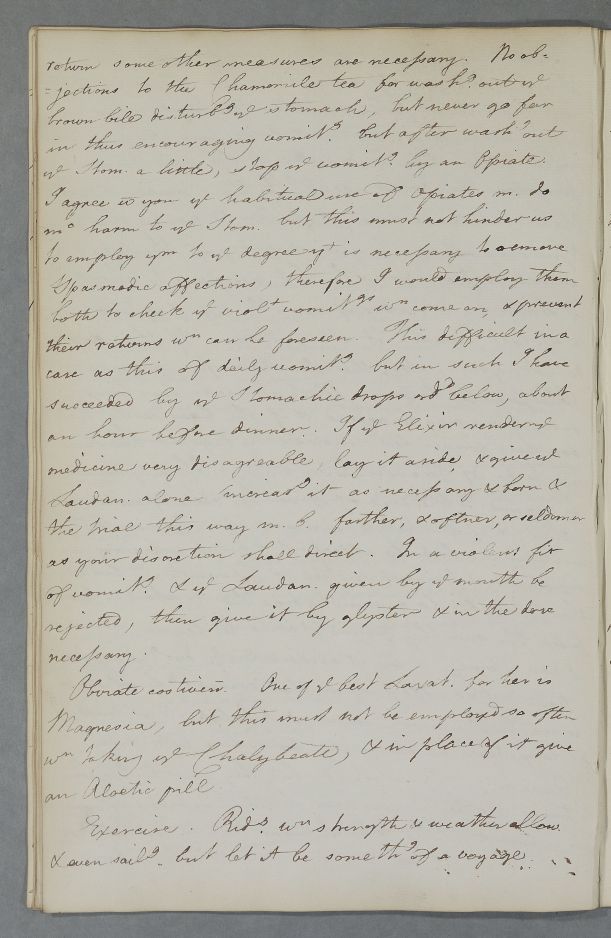 return some other measures are necessary. No ob-
=jections to the Chamomile tea for wash.g out ye
brown bile disturb.g ye stomach, but never go far
in thus encouraging vomit.g but after wash.g out
ye Stom. a little, stop ye vomit.g by an Opiate.
I agree w you ye habitual use of Opiates m. do
mo harm to ye Stom. but this must not hinder us
to employ ym to ye degree yt is necessary to remove
Spasmodic affections, therefore I would employ them
both to check ye violt vomit.gs wn come on, & prevent
their returns wn can be foreseen. This difficult in a
case as this of daily vomit.g but in such I have
succeeded by ye Stomachic drops ord.d below, about
an hour before dinner. If ye Elixir renders ye
medicine very disagreable, lay it aside, & give ye
Laudan. alone increas.g it as necessary &
the trial this way m. b. farther, & oftner, or seldomer
as your discretion shall direct. In a violent fit
of vomit.g & ye Laudan. given by ye mouth be
rejected, then give it by glyster & in the dose
necessary.
Obviate costiven. One of ye best Laxat. for her is
Magnesia, but this must not be employ'd so often
wn taking ye Chalybeate, & in place of it give
an Aloetic pill
Exercise. Rid.g wn strength & weather allow
& even sail.g but let it be someth.g of a voyage.